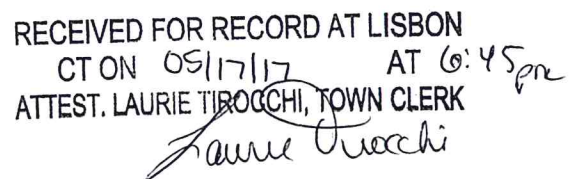 RECEIVED FOR RECORD AT LISBON
CT ON 05/17/17 AT 6:45 pm
ATTEST. LAURIE TIROCCHI, TOWN CLERK
Laurie Tirocchi